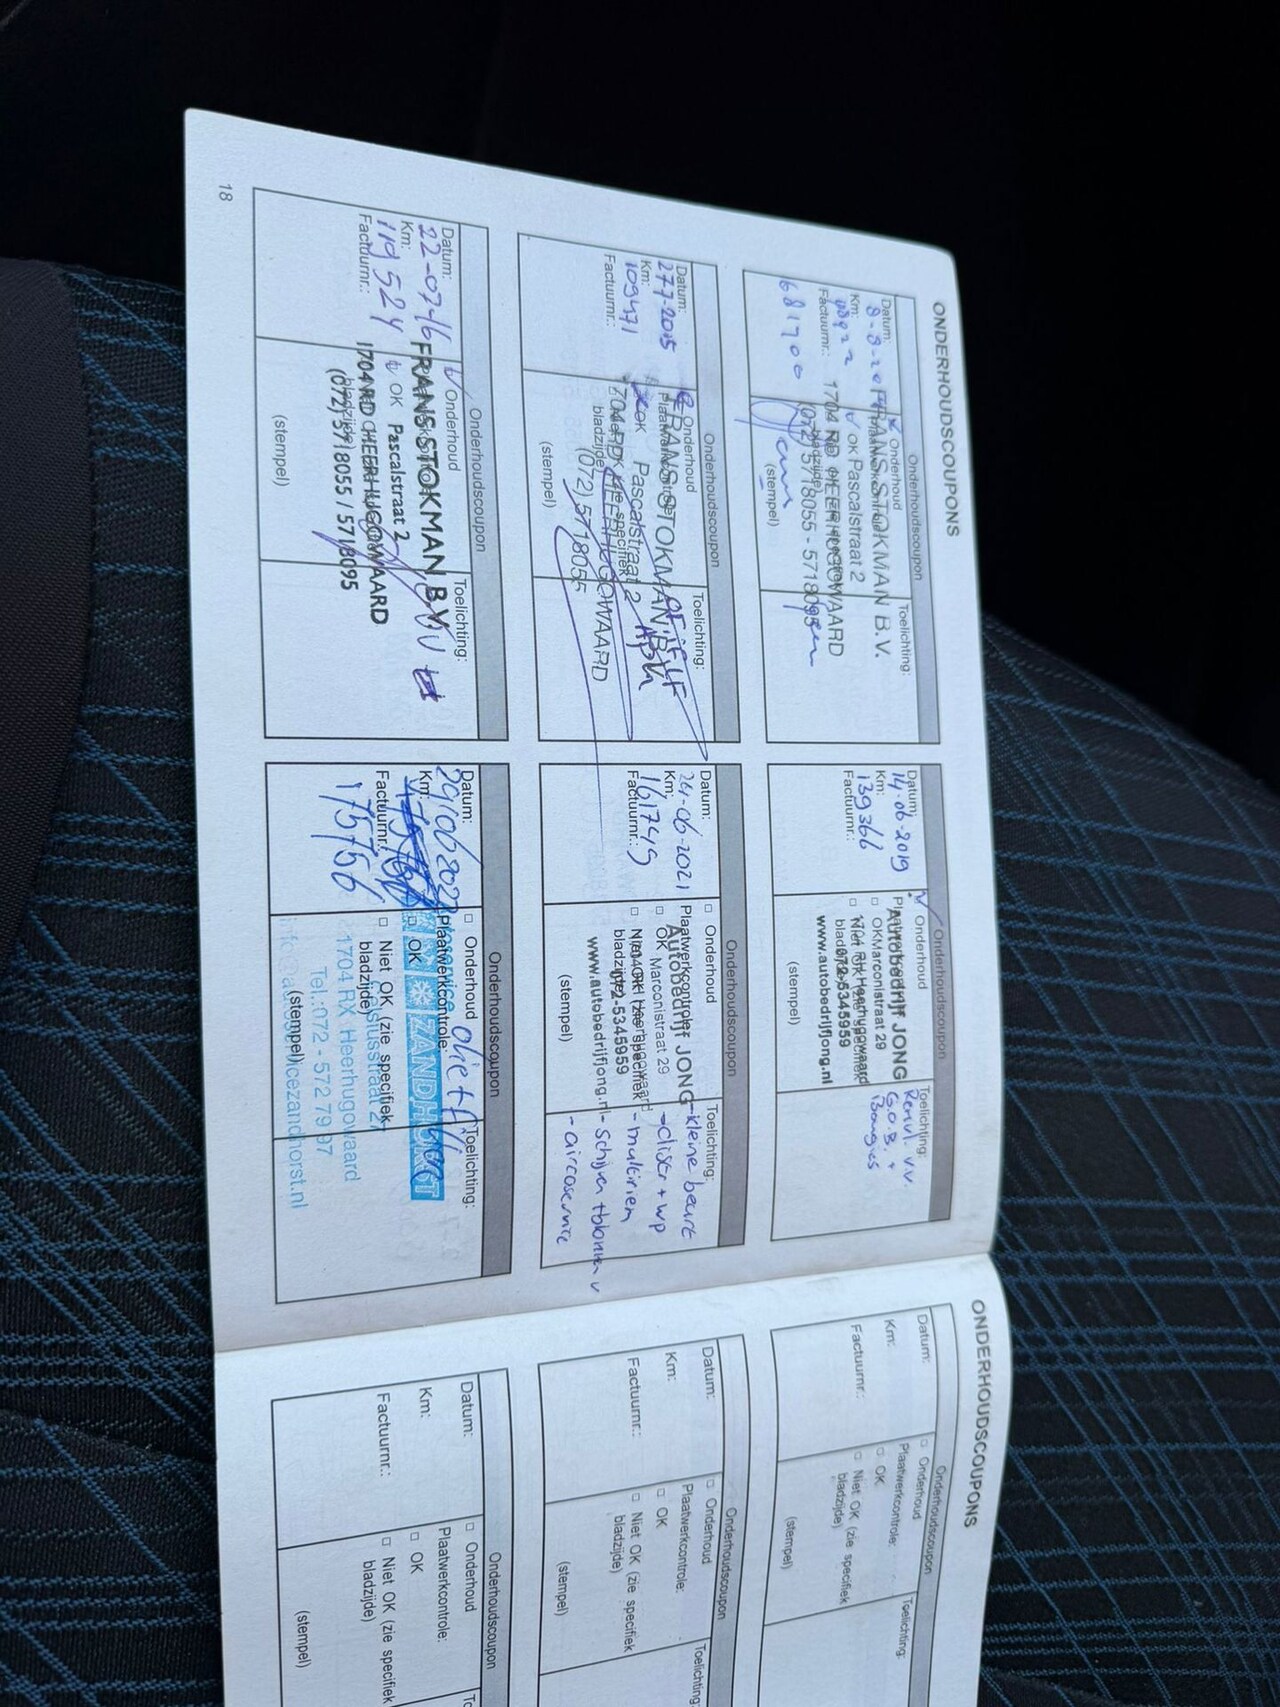 ONDERHOUDSCOUPONS
Onderhoudscoupon
Datum:
Km:
Factuurnr.:
681700
Onderhoud
OK
FRANS STOKMAN B.V.
Pascalstraat 2
1704 RD HEERHUGOWAARD
(072) 5718055 - 5718095
(stempel)
Toelichting:
Onderhoudscoupon
Datum:
27-7-2015
Km:
109471
Factuurnr.:
Onderhoud
OK
FRANS STOKMAN B.V.
Pascalstraat 2
1704 RD HEERHUGOWAARD
(072) 5718055
(stempel)
Toelichting:
Onderhoudscoupon
Datum:
22-07-16
Km:
119524
Factuurnr.:
Onderhoud
OK
FRANS STOKMAN B.V.
Pascalstraat 2
1704 RD HEERHUGOWAARD
(072) 5718055 / 5718095
(stempel)
Toelichting:
18
Onderhoudscoupon
Datum:
14-06-2019
Km:
139366
Factuurnr.:
Onderhoud
OK
Autobedrijf JONG
Marconistraat 29
1704 RH Heerhugowaard
072-5345959
www.autobedrijfjong.nl
(stempel)
Toelichting:
Remvl. v.v.
G.O.B. +
Bougies
Onderhoudscoupon
Datum:
24-06-2021
Km:
161749
Factuurnr.:
Onderhoud
Plaatwerkcontrole:
OK
Autobedrijf JONG
Marconistraat 29
072-5345959
www.autobedrijfjong.nl
(stempel)
Toelichting:
- kleine beurt
- multiriem
- aircoservice
Onderhoudscoupon
Datum:
29/06/2022
Km:
Factuurnr.:
175756
Onderhoud
Plaatwerkcontrole:
OK
Niet OK (zie specifiek
bladzijde)
ZANDHORST
1704 RX Heerhugowaard
Tel.: 072 - 572 79 97
(stempel)
Toelichting:
ONDERHOUDSCOUPONS
Onderhoudscoupon
Datum:
Km:
Factuurnr.:
Onderhoud
Plaatwerkcontrole:
OK
Niet OK (zie specifiek
bladzijde)
(stempel)
Toelichting:
Onderhoudscoupon
Datum:
Km:
Factuurnr.:
Onderhoud
Plaatwerkcontrole:
OK
Niet OK (zie specifiek
bladzijde)
(stempel)
Toelichting:
Onderhoudscoupon
Datum:
Km:
Factuurnr.:
Onderhoud
Plaatwerkcontrole:
OK
Niet OK (zie specifiek
bladzijde)
(stempel)